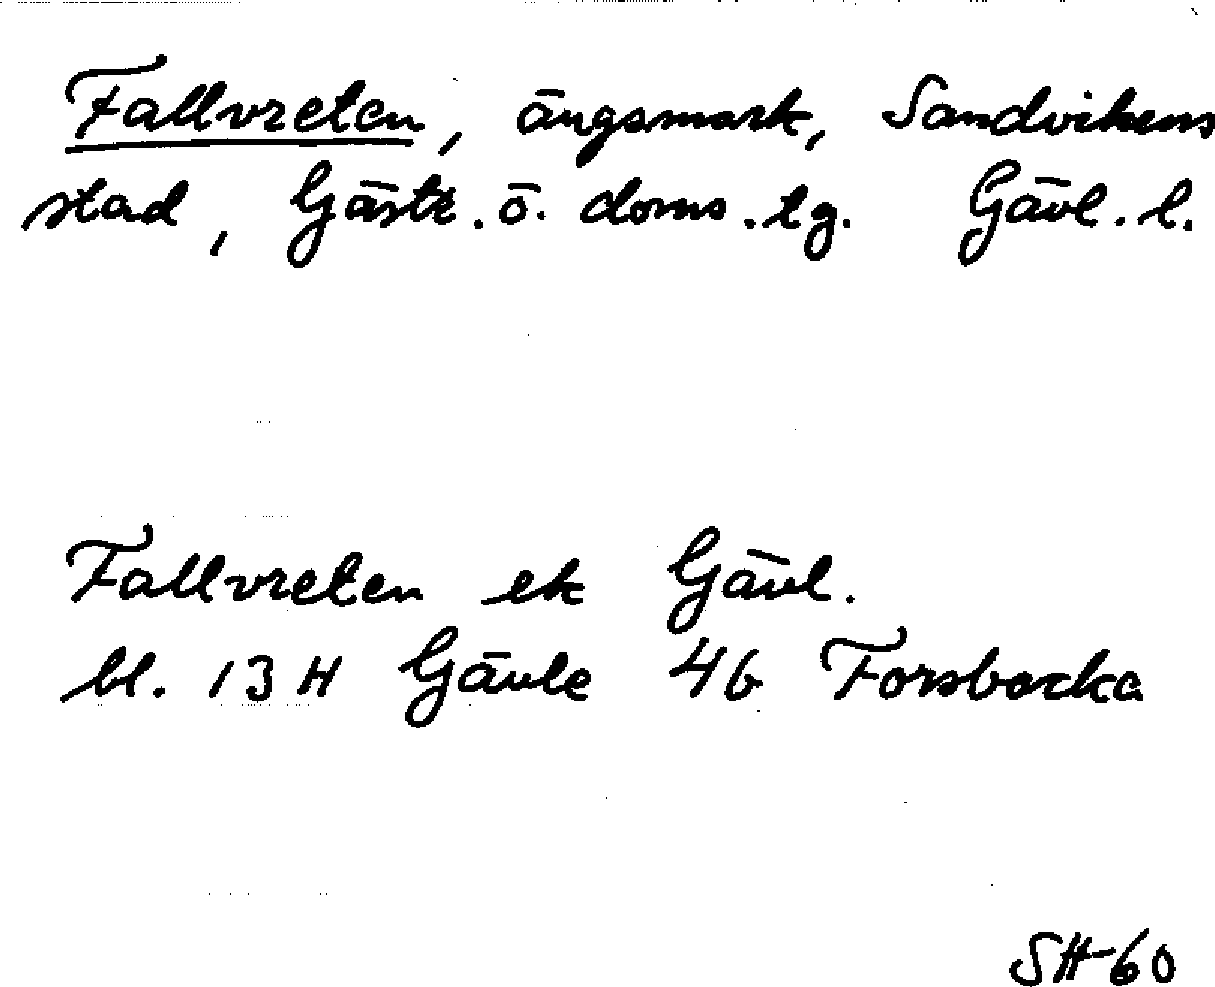 Fallvreten, ängsmark, Sandvikens
stad, Gästr. ö. doms.tg. Gävl. l.
Fallvreten ek Gävl.
bl. 13 H Gävle 4b Forsbacka
SH-60